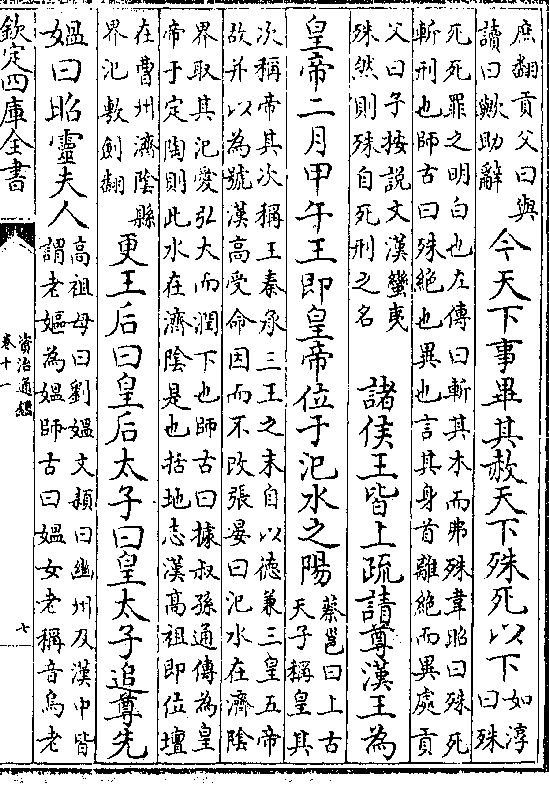 庶翻貢父曰與
讀曰歟助辭
今天下事畢其赦天下殊死以下
如淳
曰殊
死死罪之明白也左傳曰斬其木而弗殊韋昭曰殊死
斬刑也師古曰殊絶也異也言其身首離絶而異處貢
父曰子按說文漢蠻夷
殊然則殊自死刑之名
諸侯王皆上疏請尊漢王為
皇帝二月甲午王即皇帝位于汜水之陽
蔡邕曰上古
天子稱皇其
次稱帝其次稱王秦承三王之末自以徳兼三皇五帝
故并以為號漢高受命因而不改張晏曰汜水在濟隂
界取其汜愛弘大而潤下也師古曰據叔孫通傳為皇
帝于定陶則此水在濟隂是也括地志漢高祖即位壇
在曹州濟隂縣
界汜敷劒翻
更王后曰皇后太子曰皇太子追尊先
媪曰昭靈夫人
高祖母曰劉媪文頴曰幽州及漢中皆
謂老嫗為媪師古曰媪女老稱音烏老
欽定四庫全書
資治通鑑
卷十一
七